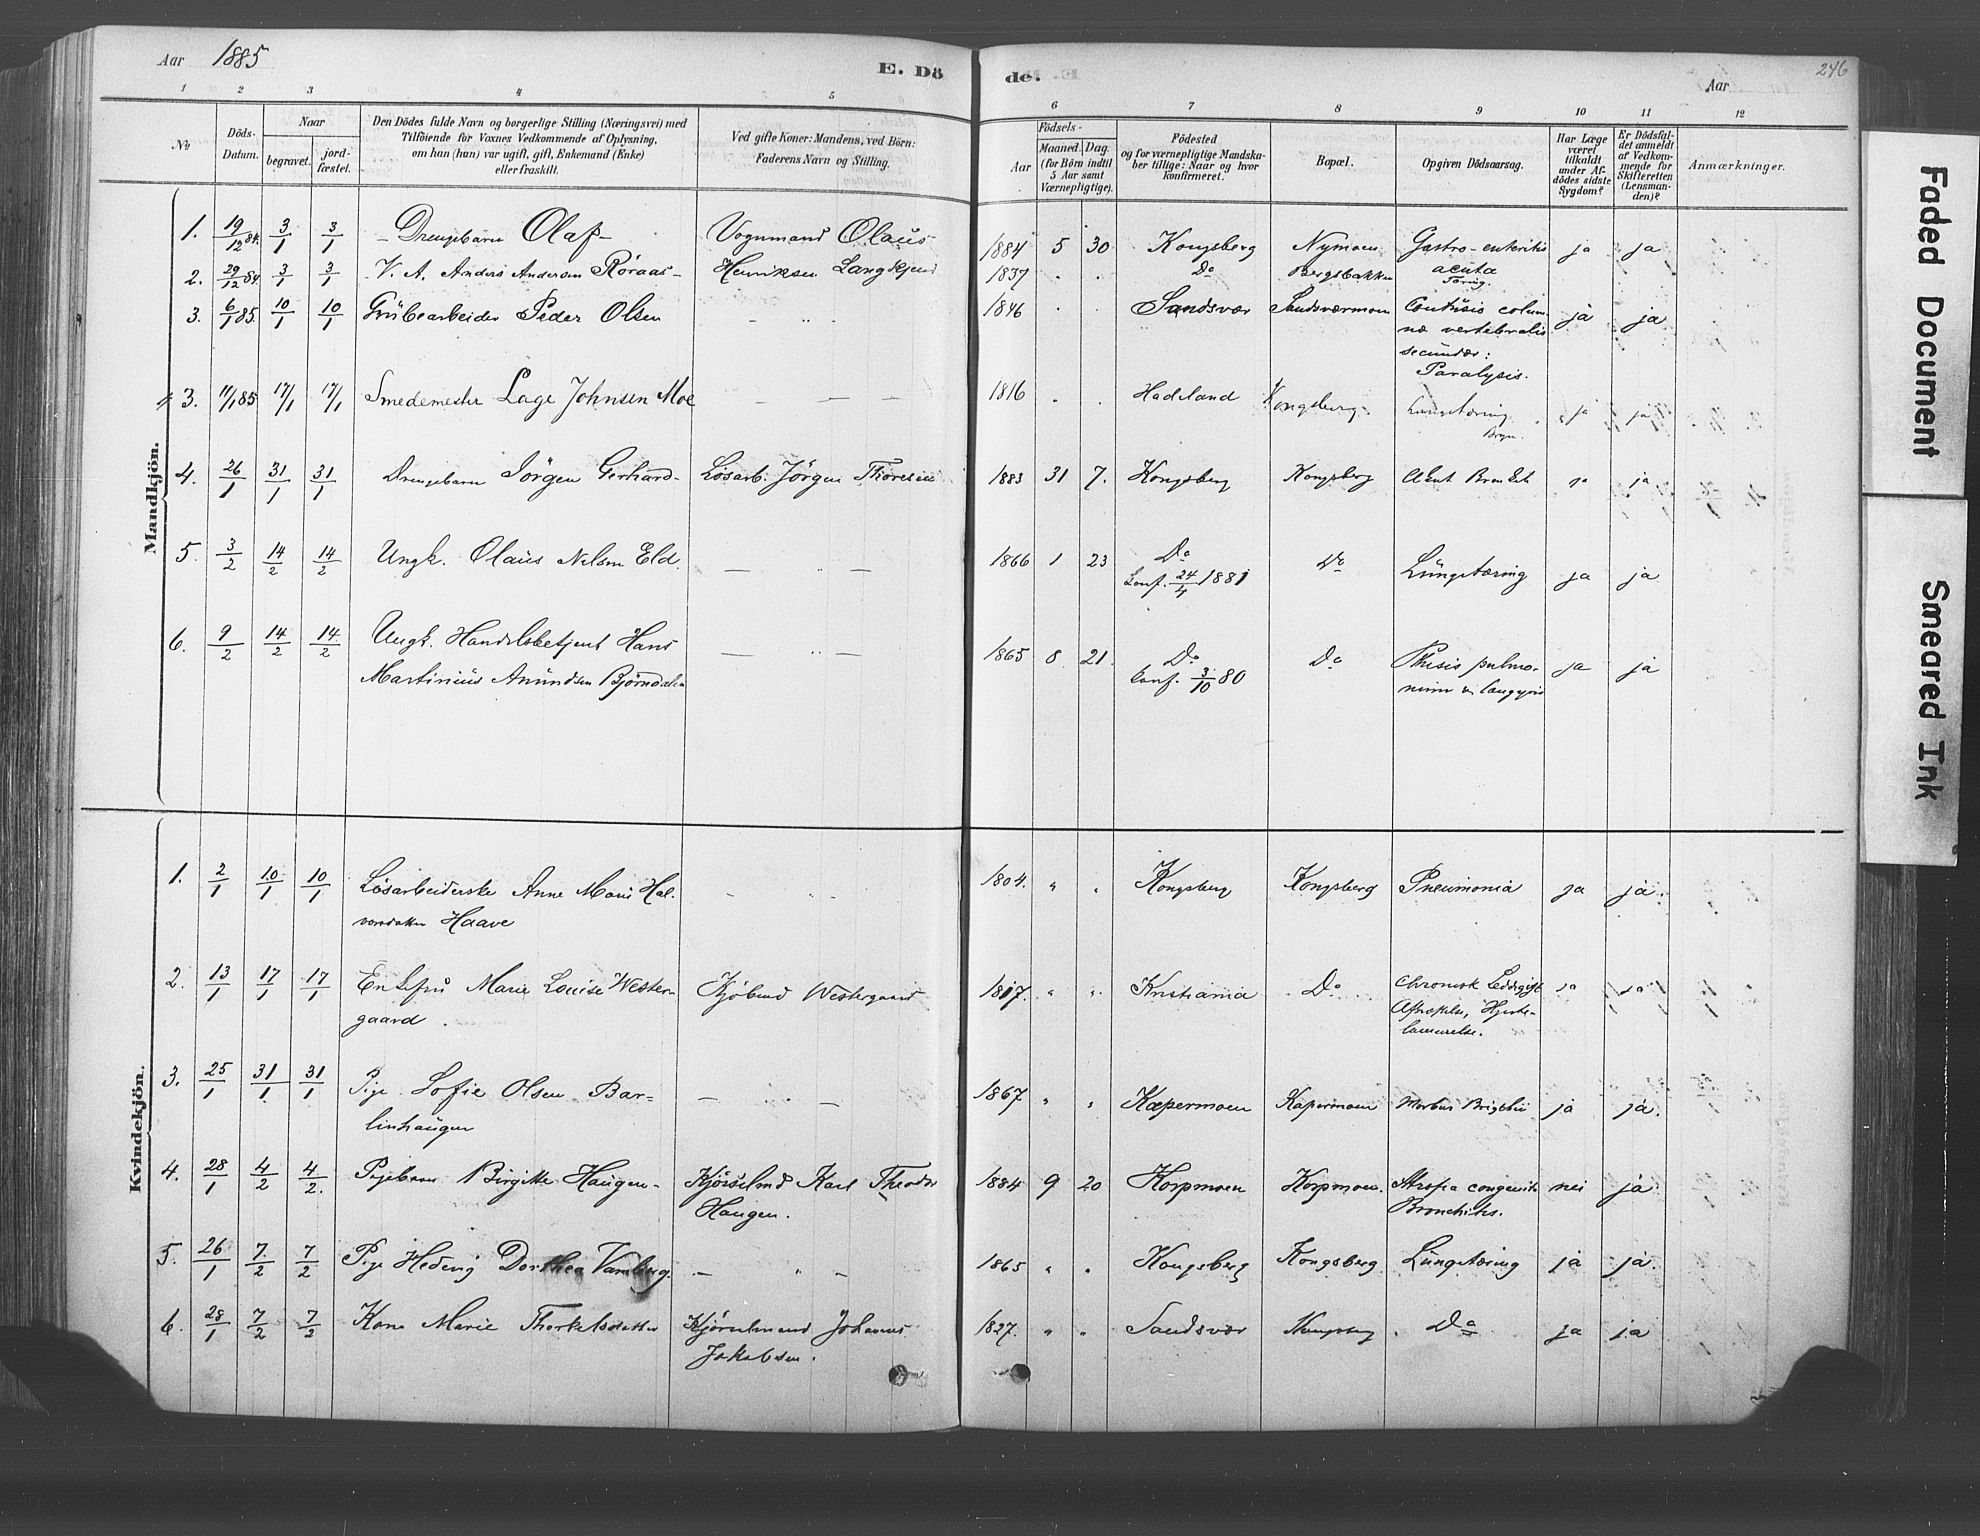 Aar 1885
E. Dö
de.
Aar
246
1 2 3 4 5
6 7 8 9 10 11 12
No
Döds-
Datum.
Naar
begravet.
jord-
fæstet.
Den Dödes fulde Navn og borgerlige Stilling (Næringsvei) med
Tilföiende for Voxnes Vedkommende af Oplysning,
om han (hun) var ugift, gift, Enkemand (Enke)
eller fraskilt.
Ved gifte Koner: Mandens, ved Börn:
Faderens Navn og Stilling.
Födsels-
Aar
Maaned. Dag.
(for Börn indtil
5 Aar samt
Værnepligtige).
Födested
og for værnepligtige Mandska-
ber tillige: Naar og hvor
konfirmeret.
Bopæl.
Opgiven Dödsaarsag.
Har Læge
været
tilkaldt
under Af-
dödes sidste
Sygdom?
Er Dödsfal-
det anmeldt
af Vedkom-
mende for
Skifteretten
(Lensman-
den)?
Anmærkninger.
Mandkjön.
1. 19/12 84. 3/1 3/1 Drengebarn Olaf Vognmand Olaus 1884 5 30 Kongsberg Nymoen Gastro-enteritis ja ja
acuta
2. 29/12 84. 3/1 3/1 V. A. Anders Andersen Röraas Henriksen Langkjend 1837 Do Bergsbakken Tæring.
3. 6/1 85. 10/1 10/1 Grubearbeider Peder Olsen 1846 Sandsvær Sandsværmoen Contusio colum-
næ vertebralis ja ja
secundær:
Paralysis.
3. 11/1 85 17/1 17/1 Smedemester Lage Johnsen Moe 1816 Hadeland Kongsberg Lungetæring ja ja
4. 26/1 31/1 31/1 Drengebarn Jörgen Gerhard Lösarb. Jörgen Thoresen 1883 31 7. Kongsberg Kongsberg Akut Bronkit ja ja
5. 3/2 14/2 14/2 Ungk. Olaus Nilsen Eld. 1866 1 23 Do Do Lungetæring ja ja
Conf. 24/4 1881
6. 9/2 14/2 14/2 Ungk. Handelsbetjent Hans
Martinius Amundsen Björndalen 1865 8 21. Do Do Phisis pulmo- ja ja
Conf. 3/10 80
Kvindekjön.
1. 2/1 10/1 10/1 Lösarbeiderske Anne Marie Hal-
vorsdatter Haave 1804. Kongsberg Kongsberg Pneumonia ja ja.
2. 13/1 17/1 17/1 Enkefru Marie Louise Wester-
gaard. Kjöbmd Westergaard 1817. Kristiania Do Chronisk Leddegigt ja ja
Hjerte-
lammelse.
3. 25/1 31/1 31/1 Pige Sofie Olsen Bar=
linhaugen 1867. Kæpermoen Kapermoen Morbus Brigthii ja ja.
4. 28/1 4/2 4/2. Pigebarn Birgitte Haugen- Kjörselmd Karl Theodor
Haugen. 1884 9 20 Korpmoen Korpmoen. Atrofia congenita nei ja
Bronchitis.
5. 26/1 7/2 7/2 Pige Hedevig Dorthea Vamberg. 1865 Kongsberg Kongsberg Lungetæring ja ja.
6. 28/1 7/2 7/2 Kone Marie Thorkelsdatter Kjörselmand Johannes
Jakobsen. 1827. Sandsvær Kongsberg Do ja ja
Faded Document
Smeared Ink